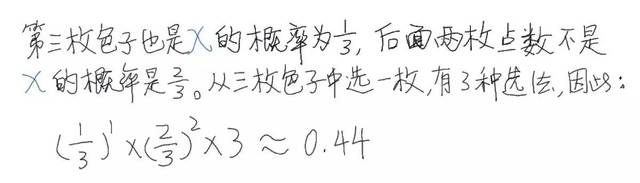 第三枚包子也是X的概率为1/3,后面两枚点数不是
X的概率是2/3。从三枚包子中选一枚,有3种选法,因此:
(1/3)¹×(2/3)²×3≈0.44